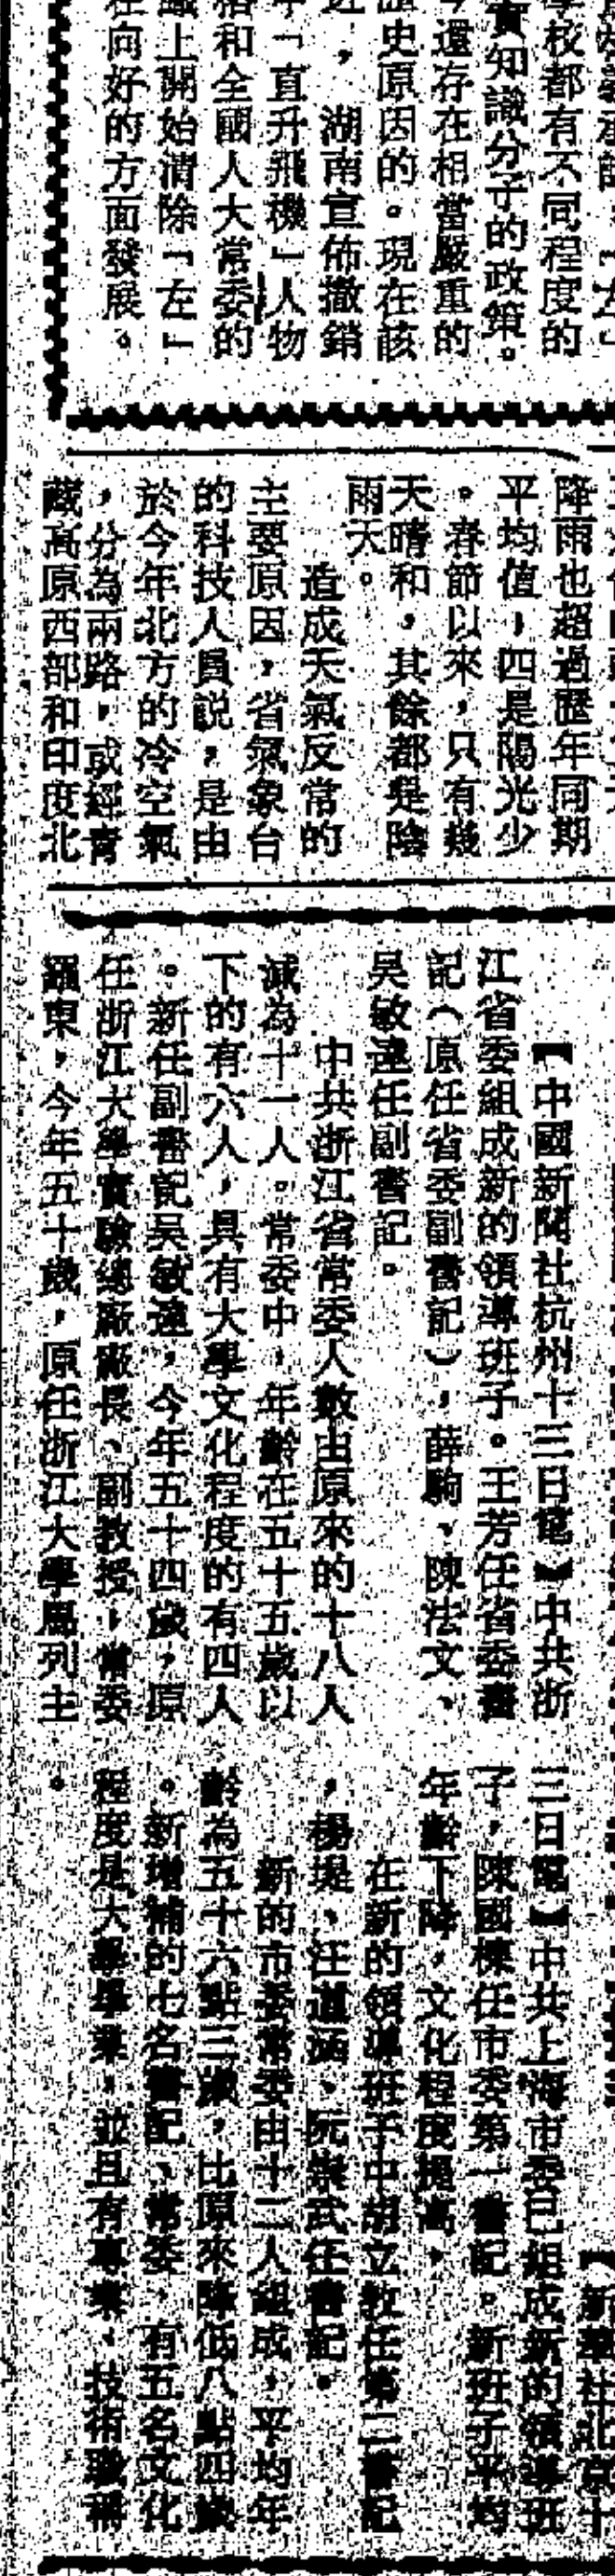 學校都有不同程度的
實知識分子的政策。
今還存在相當嚴重的
歷史原因的。現在該
近，湖南宣佈撤銷
中「直升飛機」人物
格和全國人大常委的
織上開始清除「左」
在向好的方面發展。
降雨也超過歷年同期
平均值，四是陽光少
。春節以來，只有幾
天晴和，其餘都是陰
雨天。
造成天氣反常的
主要原因，省氣象台
的科技人員説，是由
於今年北方的冷空氣
，分為兩路，或經青
藏高原西部和印度北
【中國新聞社杭州十三日電】中共浙
江省委組成新的領導班子。王芳任省委書
記（原任省委副書記），薛駒、陳法文、
吳敏達任副書記。
中共浙江省常委人數由原來的十八人
減為十一人。常委中，年齡在五十五歲以
下的有六人，具有大學文化程度的有四人
。新任副書記吳敏達，今年五十四歲，原
任浙江大學實驗總廠廠長、副教授，常委
羅東，今年五十歲，原任浙江大學馬列主
【新華社北京十
三日電】中共上海市委已組成新的領導班
子，陳國棟任市委第一書記。新班子平均
年齡下降，文化程度提高。
在新的領導班子中胡立教任第二書記
，楊堤、汪道涵、阮崇武任書記。
新的市委常委由十二人組成，平均年
齡為五十六點三歲，比原來降低八點四歲
。新增補的七名書記、常委，有五名文化
程度是大學畢業，並且有專業、技術職稱
。